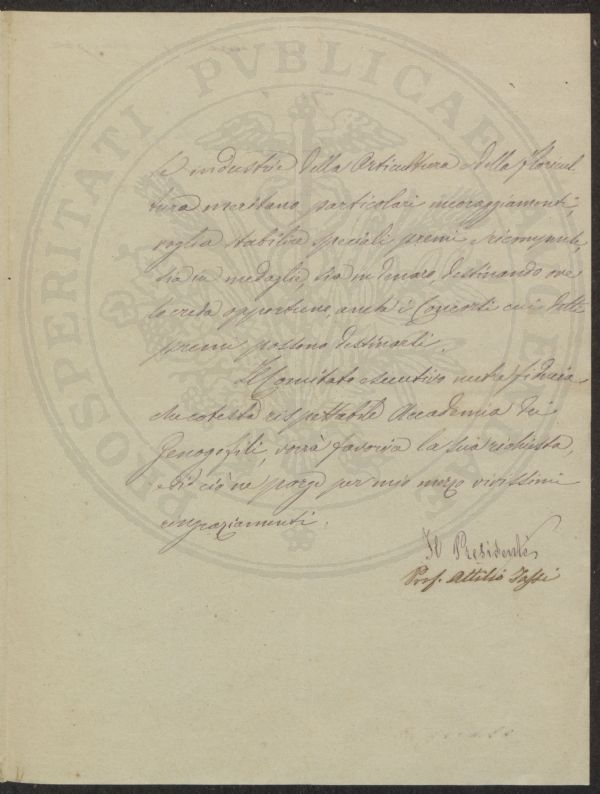 PROSPERITATI PVBLICAE AVGENDAE
le industrie della Orticultura e della Floricul
tura meritano particolari incoraggiamenti,
voglia stabilire speciali premi e ricompense,
sia in medaglie, sia in denaro, destinando ove
lo creda opportuno, anche i Concorsi cui detti
premi possono destinarsi.
Il Comitato esecutivo nutre fiducia
che cotesta rispettabile Accademia dei
Georgofili, vorrà favorire la sua richiesta,
e di ciò ne porge per mio mezzo vivissimi
ringraziamenti.
Il Presidente
Prof. Attilio Tassi